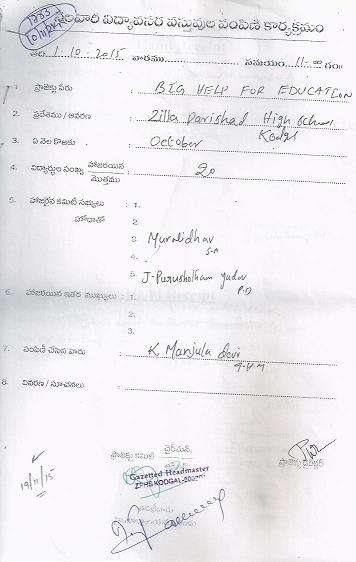 1253
10/11/15
నెలవారి విద్యావసర వస్తువుల పంపిణి కార్యక్రమం
తేది 1-10-2015 వారము సమయం 11-00 గం॥
1. ప్రాజెక్టు పేరు : BIG HELP FOR EDUCATION
2. ప్రదేశము / ఆవరణ : Zilla Parishad High School
Kodgl
3. ఏ నెల కొరకు : October
4. విద్యార్థుల సంఖ్య హాజరయిన : 20
మొత్తము
5. హాజరైన కమిటీ సభ్యులు : 1.
హోదాతో 2.
3. Muralidhar
S.A
4.
5. J. Purushotham yadav
P.D
6. హాజరయిన ఇతర ముఖ్యులు : 1.
2.
3.
7. పంపిణీ చేసిన వారు : K. Manjula devi
G.H.M
8. వివరణ / సూచనలు :
ప్రాజెక్టు కమిటి చైర్‌మెన్,
ప్రాజెక్టు డైరెక్టర్
Gazetted Headmaster
ZPHS KODGAL
19/11/15